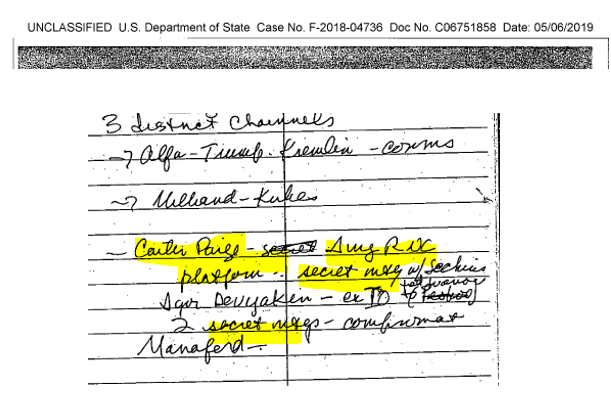 UNCLASSIFIED U.S. Department of State Case No. F-2018-04736 Doc No. C06751858 Date: 05/06/2019
3 distnct Channels
→ Alfa-Trump-Kremlin - comms
→ Millian - Kukes
- Carter Page - secret
platform - secret mtg w/ Sechin
Igor Devyaken - ex
2 secret mtgs - confirmat
Manaford -